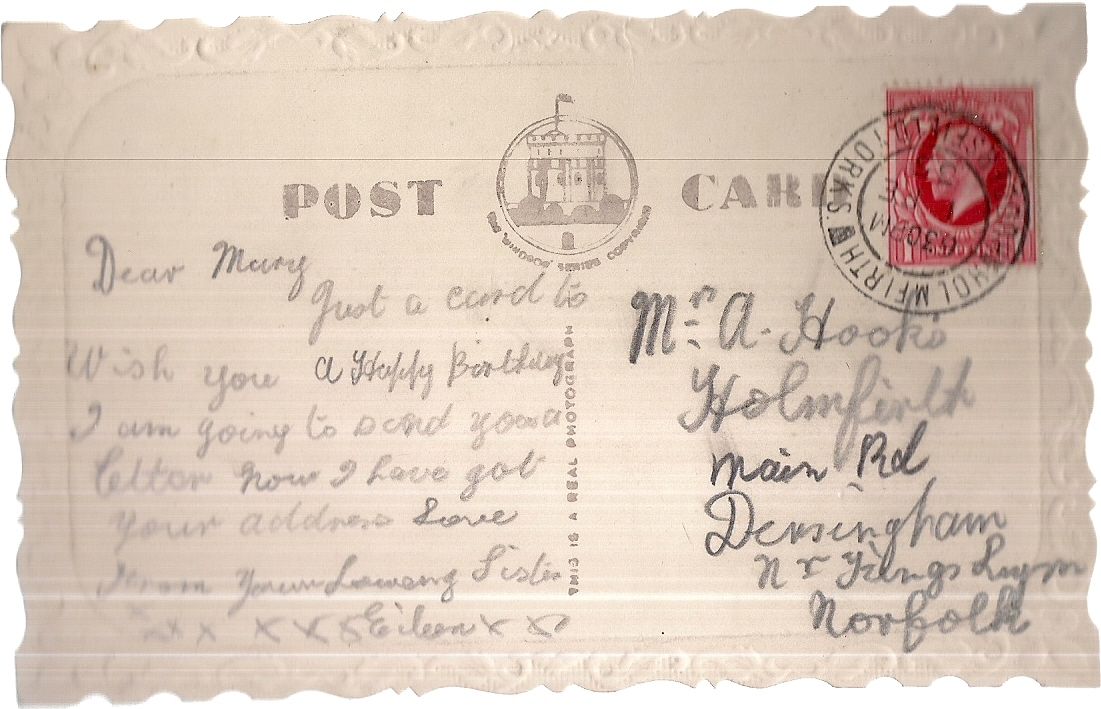 POST CARD
THE "WINDSOR" SERIES COPYRIGHT
HOLMFIRTH
YORKS.
6 30 PM
Dear Mary
Just a card to
Wish you a Happy Birthday
I am going to send you a
letter now I have got
your address Love
From Your Loveing Sister
x x x x x Eileen x x
THIS IS A REAL PHOTOGRAPH
Mr. A. Hooks
Holmfirth
Main Rd
Dersingham
Nr Kings Lynn
Norfolk